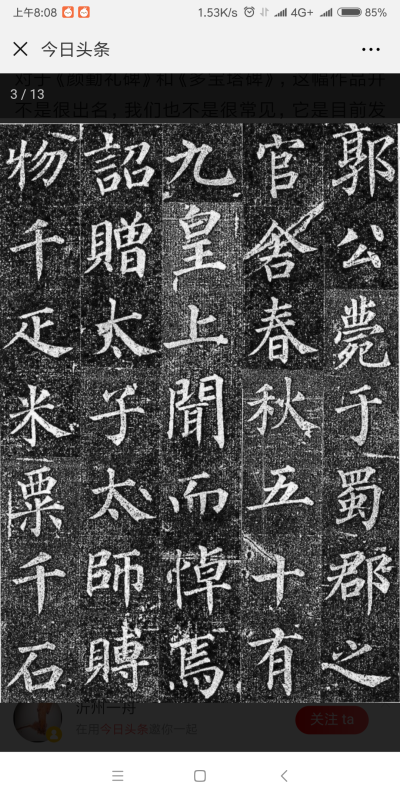 上午8:08 1.53K/s 4G+ 85%
今日头条
对于《颜勤礼碑》和《多宝塔碑》，这幅作品并
3 / 13
不是很出名，我们也不是很常见，它是目前发
郭公薨于蜀郡之
官舍春秋五十有
九皇上聞而悼焉
詔贈太子太師賻
物千疋米粟千石
关注 ta